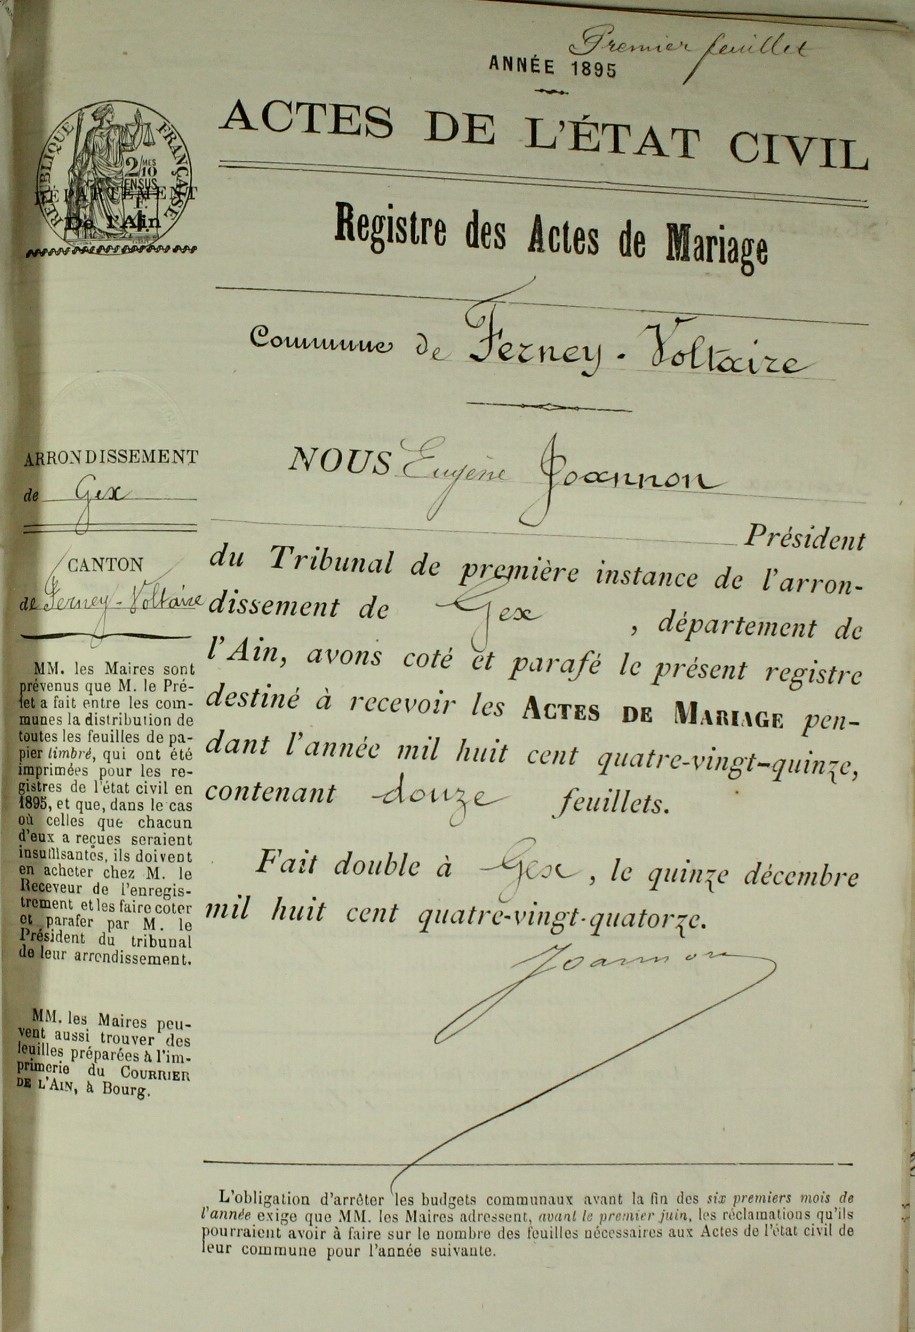 Premier feuillet
ANNÉE 1895
ACTES DE L'ÉTAT CIVIL
RÉPUBLIQUE FRANÇAISE
2/10 MES
EN SUS
DÉPARTEMENT
De l'Ain
Registre des Actes de Mariage
Commune de Ferney-Voltaire
ARRONDISSEMENT
de Gex
CANTON
de Ferney-Voltaire
MM. les Maires sont
prévenus que M. le Pré-
fet a fait entre les com-
munes la distribution de
toutes les feuilles de pa-
pier timbré, qui ont été
imprimées pour les re-
gistres de l'état civil en
1895, et que, dans le cas
où celles que chacun
d'eux a reçues seraient
insuffisantes, ils doivent
en acheter chez M. le
Receveur de l'enregis-
trement et les faire coter
et parafer par M. le
Président du tribunal
de leur arrondissement.
MM. les Maires peu-
vent aussi trouver des
feuilles préparées à l'im-
primerie du COURRIER
DE L'AIN, à Bourg.
NOUS Eugène Joannon
Président
du Tribunal de première instance de l'arron-
dissement de Gex, département de
l'Ain, avons coté et parafé le présent registre
destiné à recevoir les ACTES DE MARIAGE pen-
dant l'année mil huit cent quatre-vingt-quinze,
contenant douze feuillets.
Fait double à Gex, le quinze décembre
mil huit cent quatre-vingt-quatorze.
Joannon
L'obligation d'arrêter les budgets communaux avant la fin des six premiers mois de
l'année exige que MM. les Maires adressent, avant le premier juin, les réclamations qu'ils
pourraient avoir à faire sur le nombre des feuilles nécessaires aux Actes de l'état civil de
leur commune pour l'année suivante.